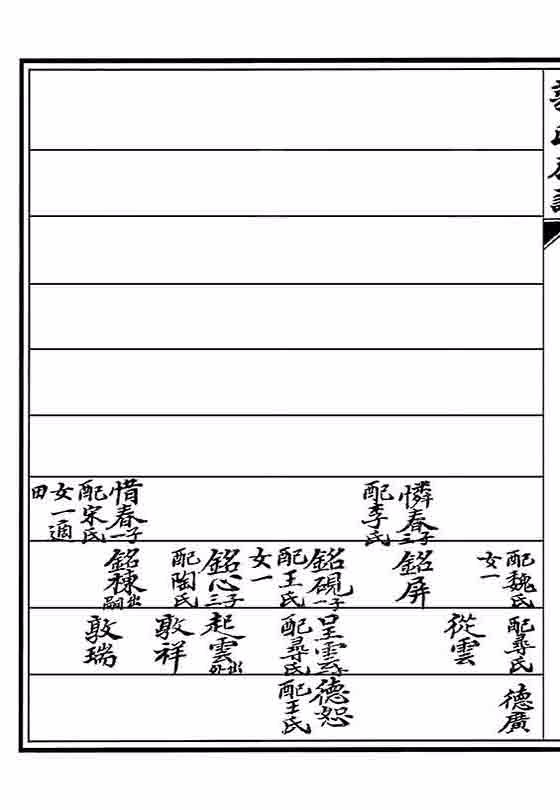 配李氏
憐春三子
惜春一子
配宋氏
女一適
田
配魏氏
女一
銘屏
銘硯一子
配王氏
女一
銘心三子
配陶氏
銘棟出嗣
配尋氏
從雲
呈雲一子
配尋氏
起雲出外
敦祥
敦瑞
德廣
德恕
配王氏